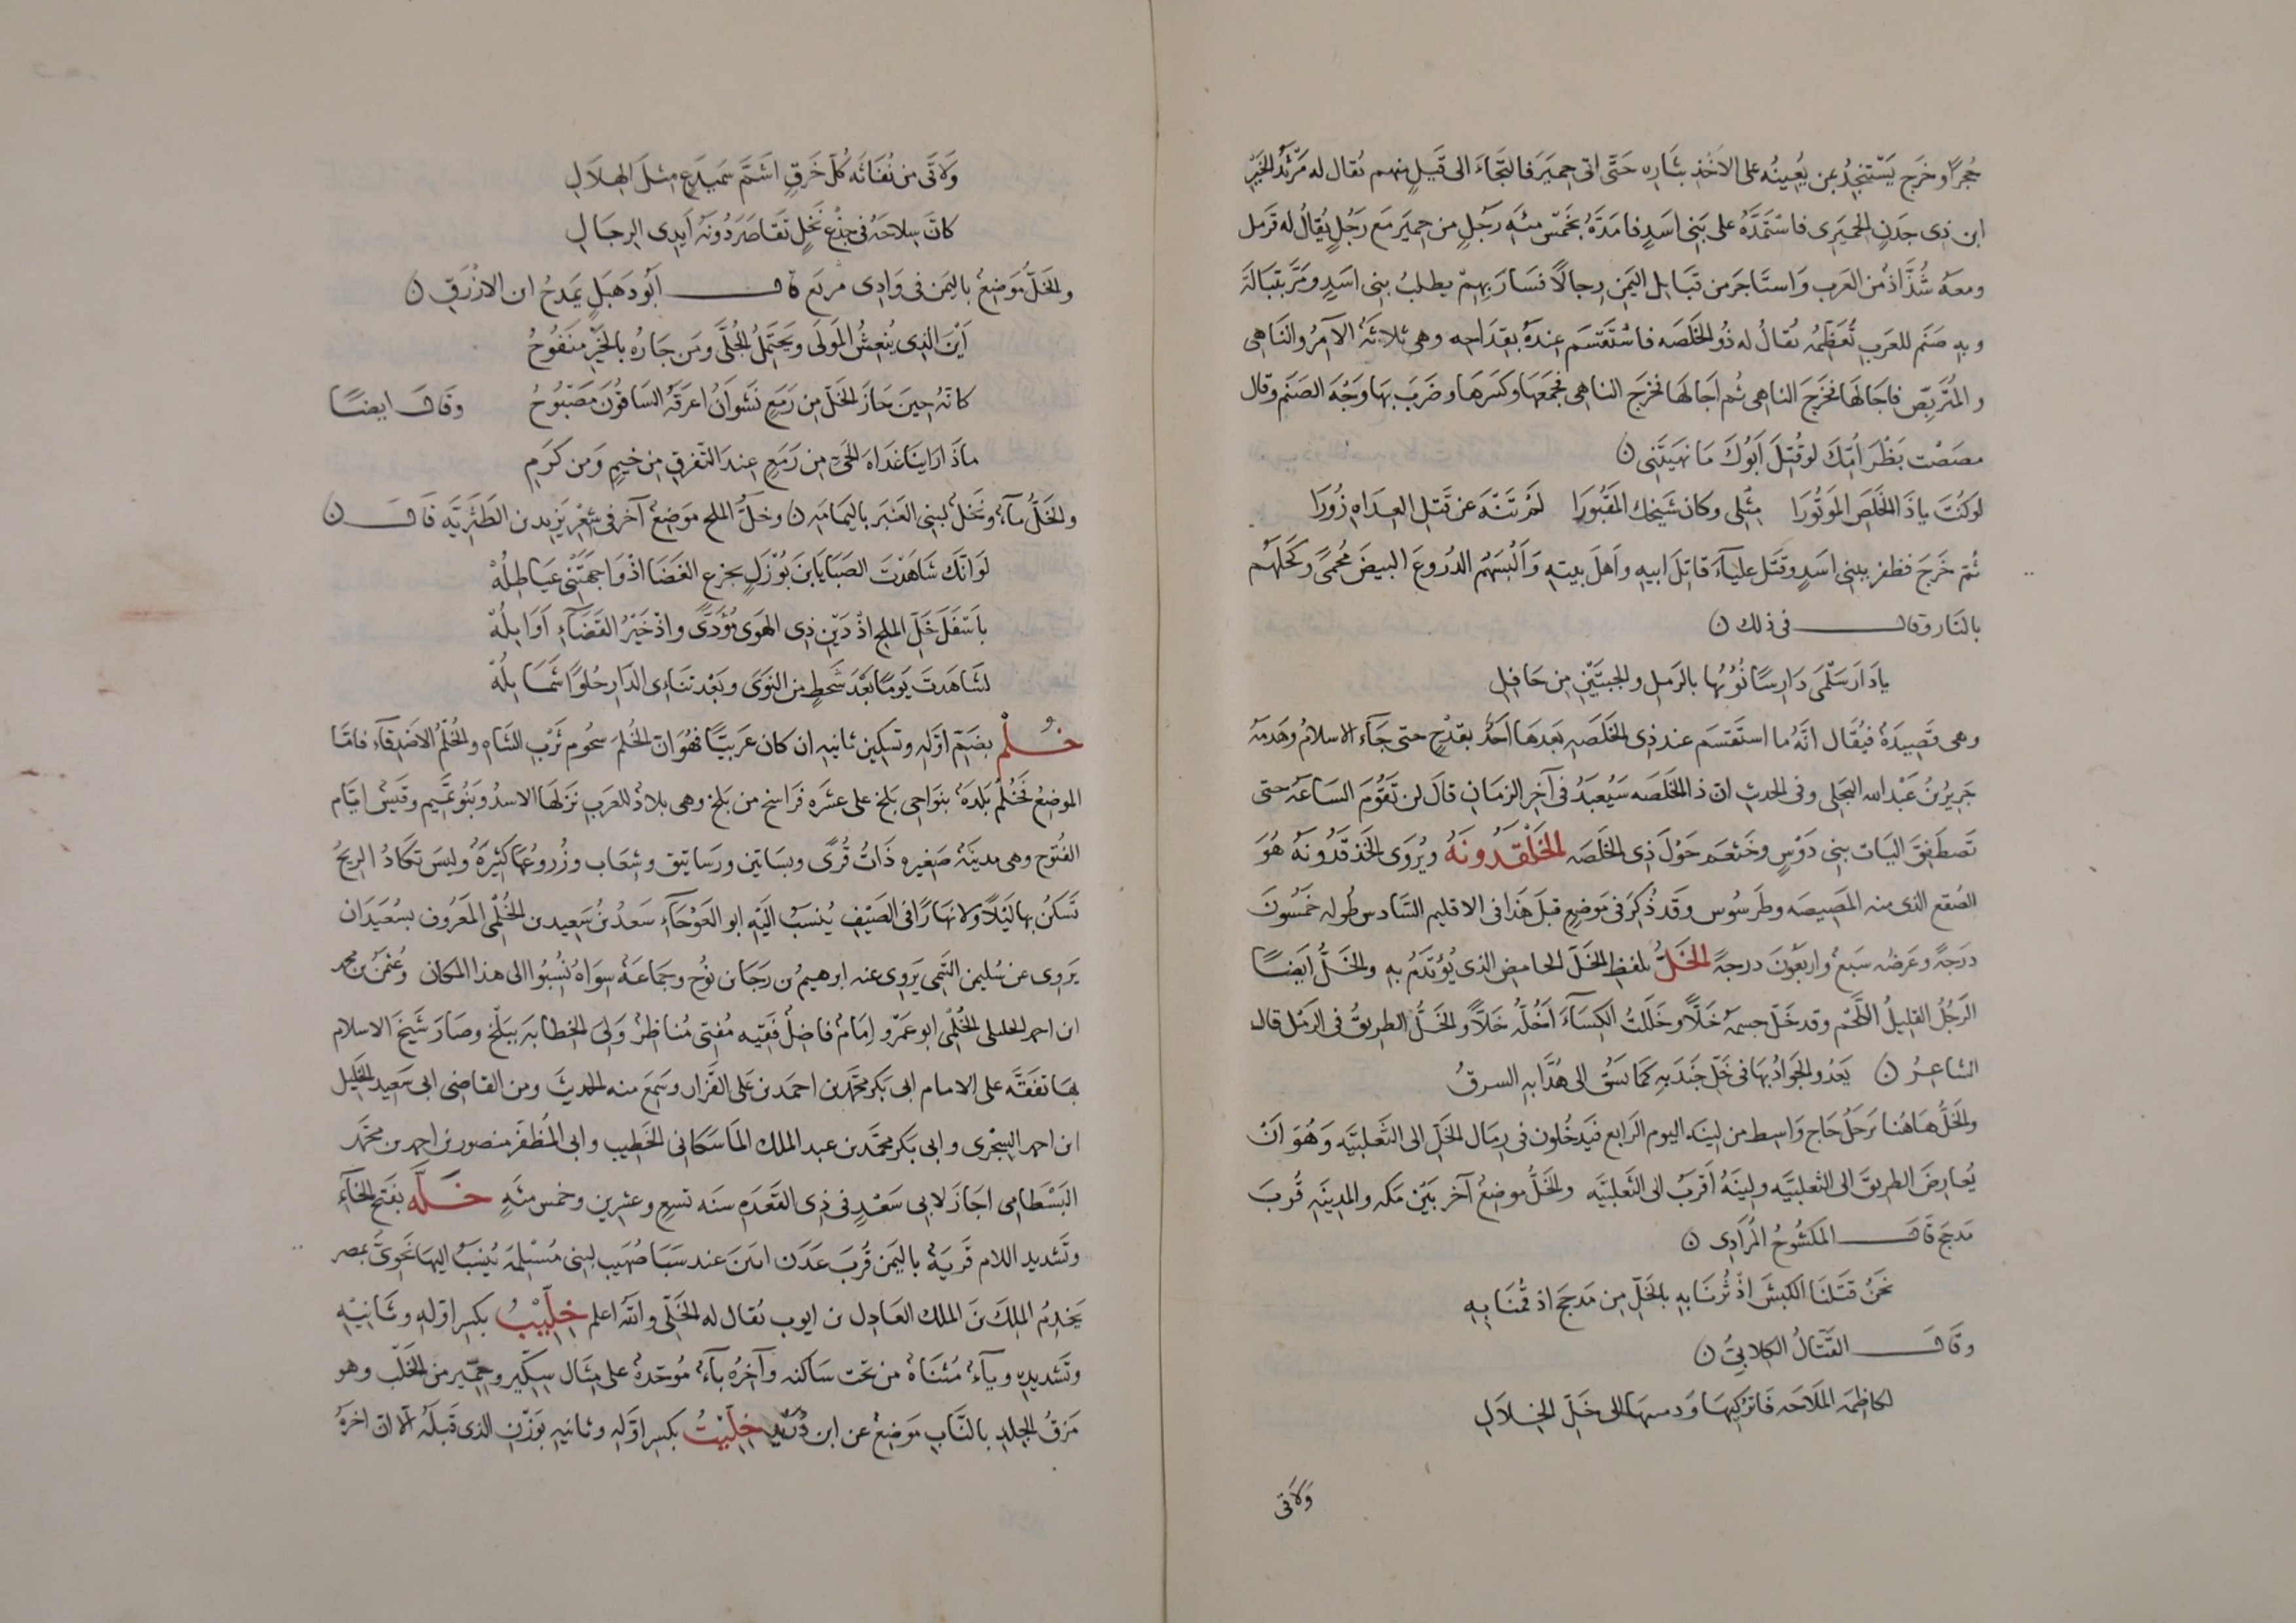 حُجرًا وخَرج يَسْتنجِدُ بمن يُعِينُه على الاخذِ بثَاره حَتَّى اتى حِميَرَ فالتجَاءَ الى قَيلٍ منهم يُقال له مَرْثدُ الخَيْرِ
ابن ذى جدَنٍ الحِميَرى فاسْتَمدَّهُ على بَنى اسَدٍ فامَدَّهُ بخَمْس مئَةِ رَجُلٍ من حِميَرَ مَع رَجُلٍ يُقالُ له قَرمل
ومعَهُ شُذّاذٌ من العَرب وَاستَاجرَ من قبَايل اليَمَنِ رجالًا فسَارَ بهِمْ يطلبُ بنى اسَدٍ ومَرَّ بتبَالَةَ
وبهِ صَنَم للعَرَبِ تُعَظّمُه يُقالُ له ذُو الخَلَصَه فاسْتَقسَم عِندَهُ بقِدَاحِه وهى ثلاثَةٌ الآمِرُ والنَاهى
والمُتَرَبّصُ فاجَالَهَا فخَرَجَ الناهى ثُم اجَالَهَا فخَرَجَ الناهى فجَمَعَهَا وكسَرهَا وضَرَبَ بهَا وَجْهَ الصَنَمِ وقال
مصَصْت بَظْرَ أُمِّكَ لو قُتِلَ اَبُوكَ مَا نهَيتَنى ن
لو كُنتَ ياذَا الخَلَصِ المَوتُورَا مِثْلى وكان شَيخُك المَقبُورَا لَمْ تَنْهَ عن قَتلِ العِدَاهِ زُورَا
ثُمّ خَرَجَ فظفر ببنى اسَدٍ وقتَل عليآءَ قاتِلَ ابيهِ واَهلَ بيتهِ وَاَلبسَهُم الدُروعَ البيضَ مُحْمىً وكَحَلَهُم
بالنَار وقال فى ذلك ن
يا دَارَ سَلْمى دَارِسًا نُؤيُها بالرَملِ والجبتَيْنِ مِن حَاقِلِ
وهى قَصِيدَةٌ فيُقَال انّهُ ما استقسَم عند ذِى الخَلَصَهِ بَعدَهَا اَحَدٌ بقِدْحٍ حتى جَآءَ الاسلامُ وهَدَمَهُ
جَريرُ بنُ عَبْدِ الله البَجَلى وفى الحدثِ انّ ذا الخَلَصَه سَيُعبَدُ فى آخِرِ الزمَانِ قالَ لن تَقُومَ السَاعَهُ حتى
تَصطَفِقَ اليَات بنى دَوْسٍ وخَثعَم حَوْلَ ذِى الخَلَصَه الخَلْقَدُونَهُ ويُروَى الخَذقَدُونَهُ هُوَ
الصُقع الذى منه المَصِيصَه وطَرسُوس وقَد ذُكِرَ فى مَوضِعٍ قبلَ هَذَا فى الاقليم السَّادس طُوله خَمسُونَ
درَجَةً وعَرضُه سَبعٌ واربَعُونَ درجةً الخَلُّ بلفظِ الخَلّ الحامض الذى يُؤتَدَمُ بهِ والخَلُّ اَيضًا
الرَجُلُ القليلُ اللّحْم وقد خَلّ جسمُهُ خَلًّا وخَلَلتُ الكِسَآءَ اَخُلّهُ خَلًّا والخَلُّ الطريقُ فى الرَمْل قال
الشاعِرُ ن يَعْدُو الجوَادُ بهَا فى خَلِّ خَيدَبهِ كمَا يُشَقّ الى هُدَّابهِ السرقُ
والخَلُّ هَاهُنا يَرحَلُ حَاج وَاسِط من لِينَه اليوم الرَابع فيَدخُلون فى رِمَال الخَلِّ الى الثَعلَبيَّه وَهُوَ انْ
يُعارِضَ الطريقَ الى الثعلبيَّه ولِينَهُ اَقرَبُ الى الثَعلَبيَّه والخَلُّ موضِعٌ آخر بَيْنَ مكه والمدينَهِ قُربَ
مَرجَح قَالَ المَكشُوحُ المُرَادى ن
نَحنُ قتَلنَا الكَبشَ اذْ ثُرنَا بهِ بالخَلّ مِن مَرجَحَ اذ قُمنَا بهِ
وقَالَ القَتّالُ الكِلابىُّ ن
لكاظِمَه المَلَاحَه فَاتركِيهَا وَدمسهَا الى خَلّ الخِلَالِ
وَلاَقى
وَلاَقَى من نُفَاثَه كُلَّ خَرْقٍ اشَمَّ سَمَيدَعٍ مِثلَ الهِلَالِ
كانَ سِلاحَهُ فى جِذْعِ نَخْلٍ تَقَاصَرَ دُونَهُ اَيْدِى الرِجَالِ
والخَلُّ مَوضِعٌ باليَمن فى وَادِى مرمَع قال اَبُو دَهبَلٍ يَمدَحُ ابن الازْرَقِ ن
اَيْنَ الذى يُنعِشُ المَولَى ويَحتَمِلُ الجُلَّى ومَن جَارُه بالخَيْرِ مَنفُوحُ
كانّهُ حِينَ جَازَ الخَلَّ مِن رَمَعٍ نَشوَانُ اغرَقَهُ السَاقُونَ مَصْبُوحُ وقَالَ ايضًا
ماذَا رَاينَا غَدَاهَ الخَلّ مِن رَمَعٍ عِندَ التَفَرقِ مِن خِيمٍ وَمن كَرَمِ
والخَلُّ مآءٌ ونَخْلٌ لبنى العَنبَر باليَمامَهِ ن وخَلُّ الملح مَوضِعٌ آخر فى شِعْرِ يَزِيد بن الطَثَرِيَّه قَالَ ن
لَوانّكَ شَاهَدْتَ الصَبَا يَابنَ بَوْزَلٍ بجزع الغَضَا اذْ وَاجَهَتْنى غيَاطِلُهْ
باَسْفَلَ خَلّ الملحِ اذْ دَيْن ذِى الهَوَى مُؤَدًّى واذْ خَيْرُ القَضَاءِ اَوَايلُهْ
لشَاهَدتَ يَومًا بَعْدَ شَحطٍ من النَوَى وبَعْد تنَاءى الدَار حُلوًا شَمَايلُهْ
خُلْم بضَمّ اوّلهِ وتسكِين ثانيهِ ان كان عَربيًّا فهُوَ انّ الخُلمَ شحُوم ثَرْبِ الشَاهِ والخُلْمُ الاَصْدِقآء فامّا
الموضعُ فخُلْمُ بَلدَهٌ بنوَاحى بَلخ على عشَرهِ فَراسخ من بَلخ وهى بلادٌ للعَرب نَزلَهَا الاسدُ وبَنُو تَمِيم وقَيسٌ ايّام
الفُتوح وهى مدينَهٌ صَغيره ذَاتُ قُرًى وبسَاتين ورسَاتيق وشِعَاب وزُرُوعُهَا كثيرَهٌ وليسَ تكَادُ الريحُ
تَسكنُ بها لَيْلًا ولا نهَارًا فى الصَيْفِ يُنسَبُ اليَه ابو العَوْجَآءِ سَعدُ بنُ سَعِيد بن الخُلْمى المَعرُوف بسُعَيدَان
يَروِى عن سُليمن التَيمى يَروِى عنه ابرهيمُ بن رَجَا بن نوُح وجَمَاعَهٌ سِوَاهُ نُسِبُوا الى هذا المكَان وعُثمنُ بن محمد
ابن احمد الخليلى الخُلْمى ابو عَمرٍو اِمَامٌ فاضِلٌ فَقيه مُفتى مُناظِرٌ وَلىَ الخطابَهَ ببَلخ وصَارَ شَيخَ الاسلام
بهَا تفَقَّه على الامام ابى بَكر محمّد بن احمَد بن عَلى القَزّاز وسَمِعَ منه الحديثَ ومن القاضى ابى سَعيد الخَليل
ابن احمد السِجْزى وابى بَكر محمّد بن عبد الملك المَاسَكانى الخَطيب وابى المُظفّر منصور بن احمد بن محمَّد
البَسْطامى اجَازَ لابى سَعْدٍ فى ذِى القَعْدَهِ سنه تسع وعشرين وخمس مئَهٍ خَلَّه بفَتح الخَآءِ
وتَشديد اللام قَريَهٌ باليَمن قُربَ عَدَن ابيَنَ عند سَبَا صُهَيب لبنى مُسْيلمَه يُنسَبُ اليهَا نَحْوىّ بمصر
يَخدِمُ المَلِكَ بنَ الملك العَادِل بن ايوب يُقال له الخَلّى والله اعلم خِلِّيْبُ بكسر اوّلهِ وثَانيْهِ
وتَشديدِهِ ويآءٌ مُثنَاهٌ من تحت سَاكنه وآخِرُه بآءٌ مُوحَّدهٌ على مِثَال سِكّير وخِمّير من الخَلْب وهو
مَزقُ الجِلدِ بالنَّابِ مَوضِعٌ عن ابن دُرَيْدٍ خِلِّيْتُ بكسر اوّلهِ وثانيهِ بوَزْنِ الذى قَبلَهُ الّا انّ اخرهُ